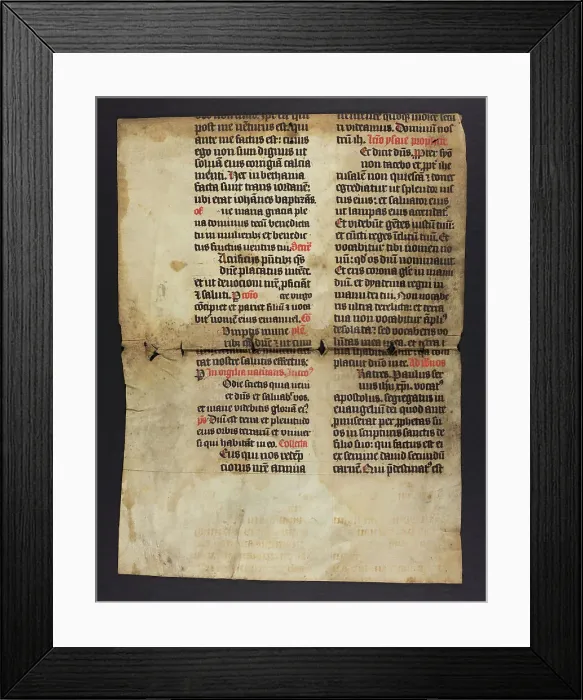 post me uenturus est qui
ante me factus est: cuius
ego non sum dignus ut
soluam eius corrigiam calcia
menti. Hec in bethania
facta sunt trans iordanē:
ubi erat iohānes baptizās.
of ue maria gracia ple
na dominus tecū benedicta
tu in mulierib et benedic
tus fructus uentris tui. Secrē
Acrificiis pn̄tibus qs
dn̄e placatus intēde.
et ut deuotioni nr̄e pficiāt
et saluti. P
cōcipiet et pariet filiū et uoca
bit nomē eius emanuel. Cō
Umptis munerib
tat nostre salutis effectus.
In vigilia natiuitatis Introitꝰ
Odie scietis quia ueni
et dn̄s et saluabit uos.
et mane uidebitis gloriā eiꝰ.
ps Dn̄i est terra et plenitudo
eius orbis terrarū et uniuer
si qui habitāt in eo. Collecta
Eus qui nos redēp
tionis nr̄e annua
ti videamus. Dominū nos
trū ih. Lc̄o ysaie prophete
Ec dicit dn̄s. Propter syō
non tacebo et ppt ihe
rusalē non quiescā: donec
egrediatur ut splendor ius
tus eius: et saluator eius
ut lampas eius accendat.
Et videbūt gētes iustū tuū:
et cūcti reges inclitū tuū. Et
vocabitur tibi nomen no
uū: qd os dn̄i nominauit.
Et eris corona glē in manu
dn̄i. et dyadema regni in
manu dei tui. Non vocabe
ris ultra derelicta: et terra
tua non vocabitur āpliꝰ
desolata: sed vocaberis vo
placuit dn̄o in te. Ad romanos
Ratres. Paulus ser
uus ihu xp̄i. vocatꝰ
apostolus. segregatus in
euangeliū dei quod ante
promiserat per pphetas su
os in scripturis sanctis de
filio suo: qui factus est ei
ex semine dauid secundū
carnē. Qui p̄destinatꝰ est